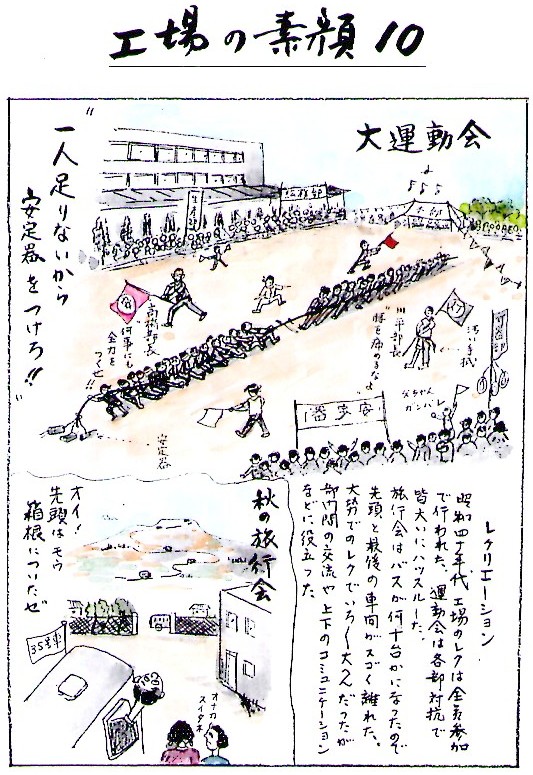 工場の素顔10
大運動会
"一人足りないから
安定器をつけろ!!"
生産部
総務部
本部
高橋部長
何事にも
全力を
つくせ!!
川平部長
"膝を痛めるなよ
汚い手拭
父ちゃん
ガンバレ
1番安定
安定器
レクリエーション
昭和四十年代、工場のレクは全員参加
で行われた。運動会は各部対抗で
皆大いにハッスルした。
旅行会はバスが何十台かになったので
先頭と最後の車間がスゴく離れた。
大勢でのレクでいろ〱大変だったが
部門間の交流や上下のコミュニケーション
などに役立った。
秋の旅行会
オイ!
先頭はモウ
箱根についたゼ
35号車
オナカ
スイタネ